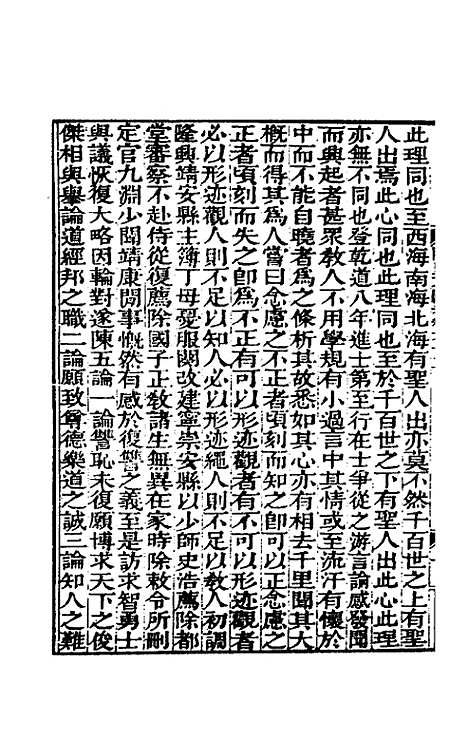 此理同也至西海南海北海有聖人出亦莫不然千百世之上有聖
人出焉此心同也此理同也至於千百世之下有聖人出此心此理
亦無不同也登乾道八年進士第至行在士爭從之游言論感發聞
而興起者甚眾教人不用學規有小過言中其情或至流汗有懷於
中而不能自曉者為之條析其故悉如其心亦有相去千里聞其大
概而得其為人嘗曰念慮之不正者頃刻而知之卽可以正念慮之
正者頃刻而失之卽為不正有可以形迹觀者有不可以形迹觀者
必以形迹觀人則不足以知人必以形迹繩人則不足以教人初調
隆興靖安縣主簿丁母憂服闋改建寧崇安縣以少師史浩薦除都
堂審察不赴侍從復薦除國子正教諸生無異在家時除敕令所刪
定官九淵少聞靖康閒事慨然有感於復讐之義至是訪求智勇士
與議恢復大略因輪對遂陳五論一論讐恥未復願博求天下之俊
傑相與舉論道經邦之職二論願致尊德樂道之誠三論知人之難